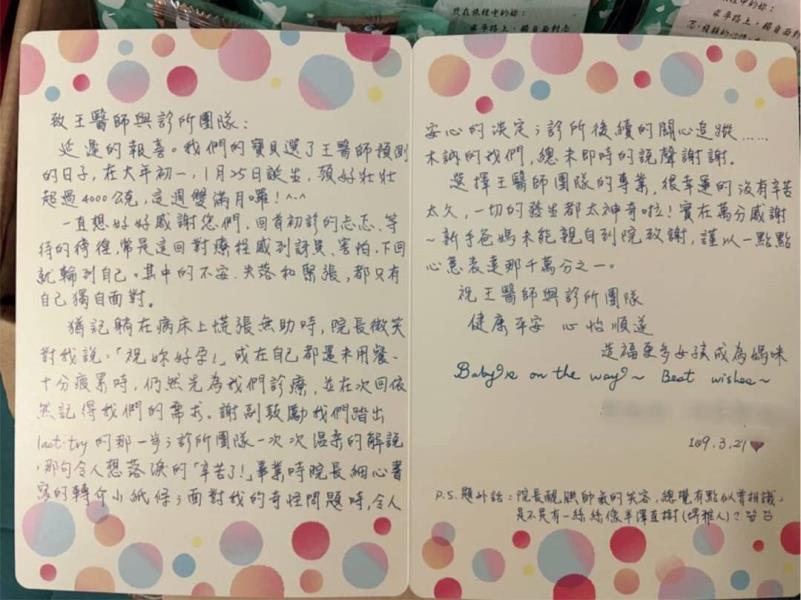 致王醫師與診所團隊：
延遲的報喜。我們的寶貝選了王醫師預測
的日子，在大年初一，1月25日誕生，頭好壯壯
超過4000公克，這週雙滿月囉！^.^
一直想好好感謝您們，回首初診的忐忑、等
待的徬徨，常是這回對療程感到訝異、害怕，下回
就輪到自己。其中的不安、失落和緊張，都只有
自己獨自面對。
猶記躺在病床上慌張無助時，院長微笑
對我說，「祝妳好孕！」或在自己都還未用餐、
十分疲累時，仍然先為我們診療，並在次回依
然記得我們的需求。謝謝鼓勵我們踏出
last-try的那一步；診所團隊一次次溫柔的解說
，那句令人想落淚的「辛苦了！」畢業時院長細心書
寫的轉介小紙條；面對我的奇怪問題時，令人
安心的淡定；診所後續的關心追蹤……
木訥的我們，總未即時的說聲謝謝。
選擇王醫師團隊的專業，很幸運的沒有辛苦
太久，一切的發生都太神奇啦！實在萬分感謝
~新手爸媽未能親自到院致謝，謹以一點點
心意表達那千萬分之一。
祝王醫師與診所團隊
健康平安 心怡順遂
造福更多女孩成為媽咪
Baby is on the way~ Best wishes~
109.3.21
P.S. 題外話：院長靦腆帥氣的笑容，總覺有點似曾相識，
是不是有一絲絲像半澤直樹(堺雅人)？